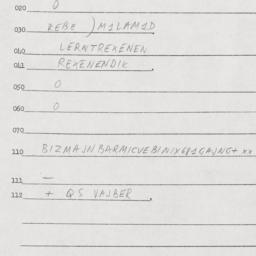 020 0
030 REBE )M1LAM1D
040 LERNTREKENEN
041 REKENENDIK
050 0
060 0
070
110 BIZMAJNBARMICVEBINIX
111 —
112 + QS VAJBER